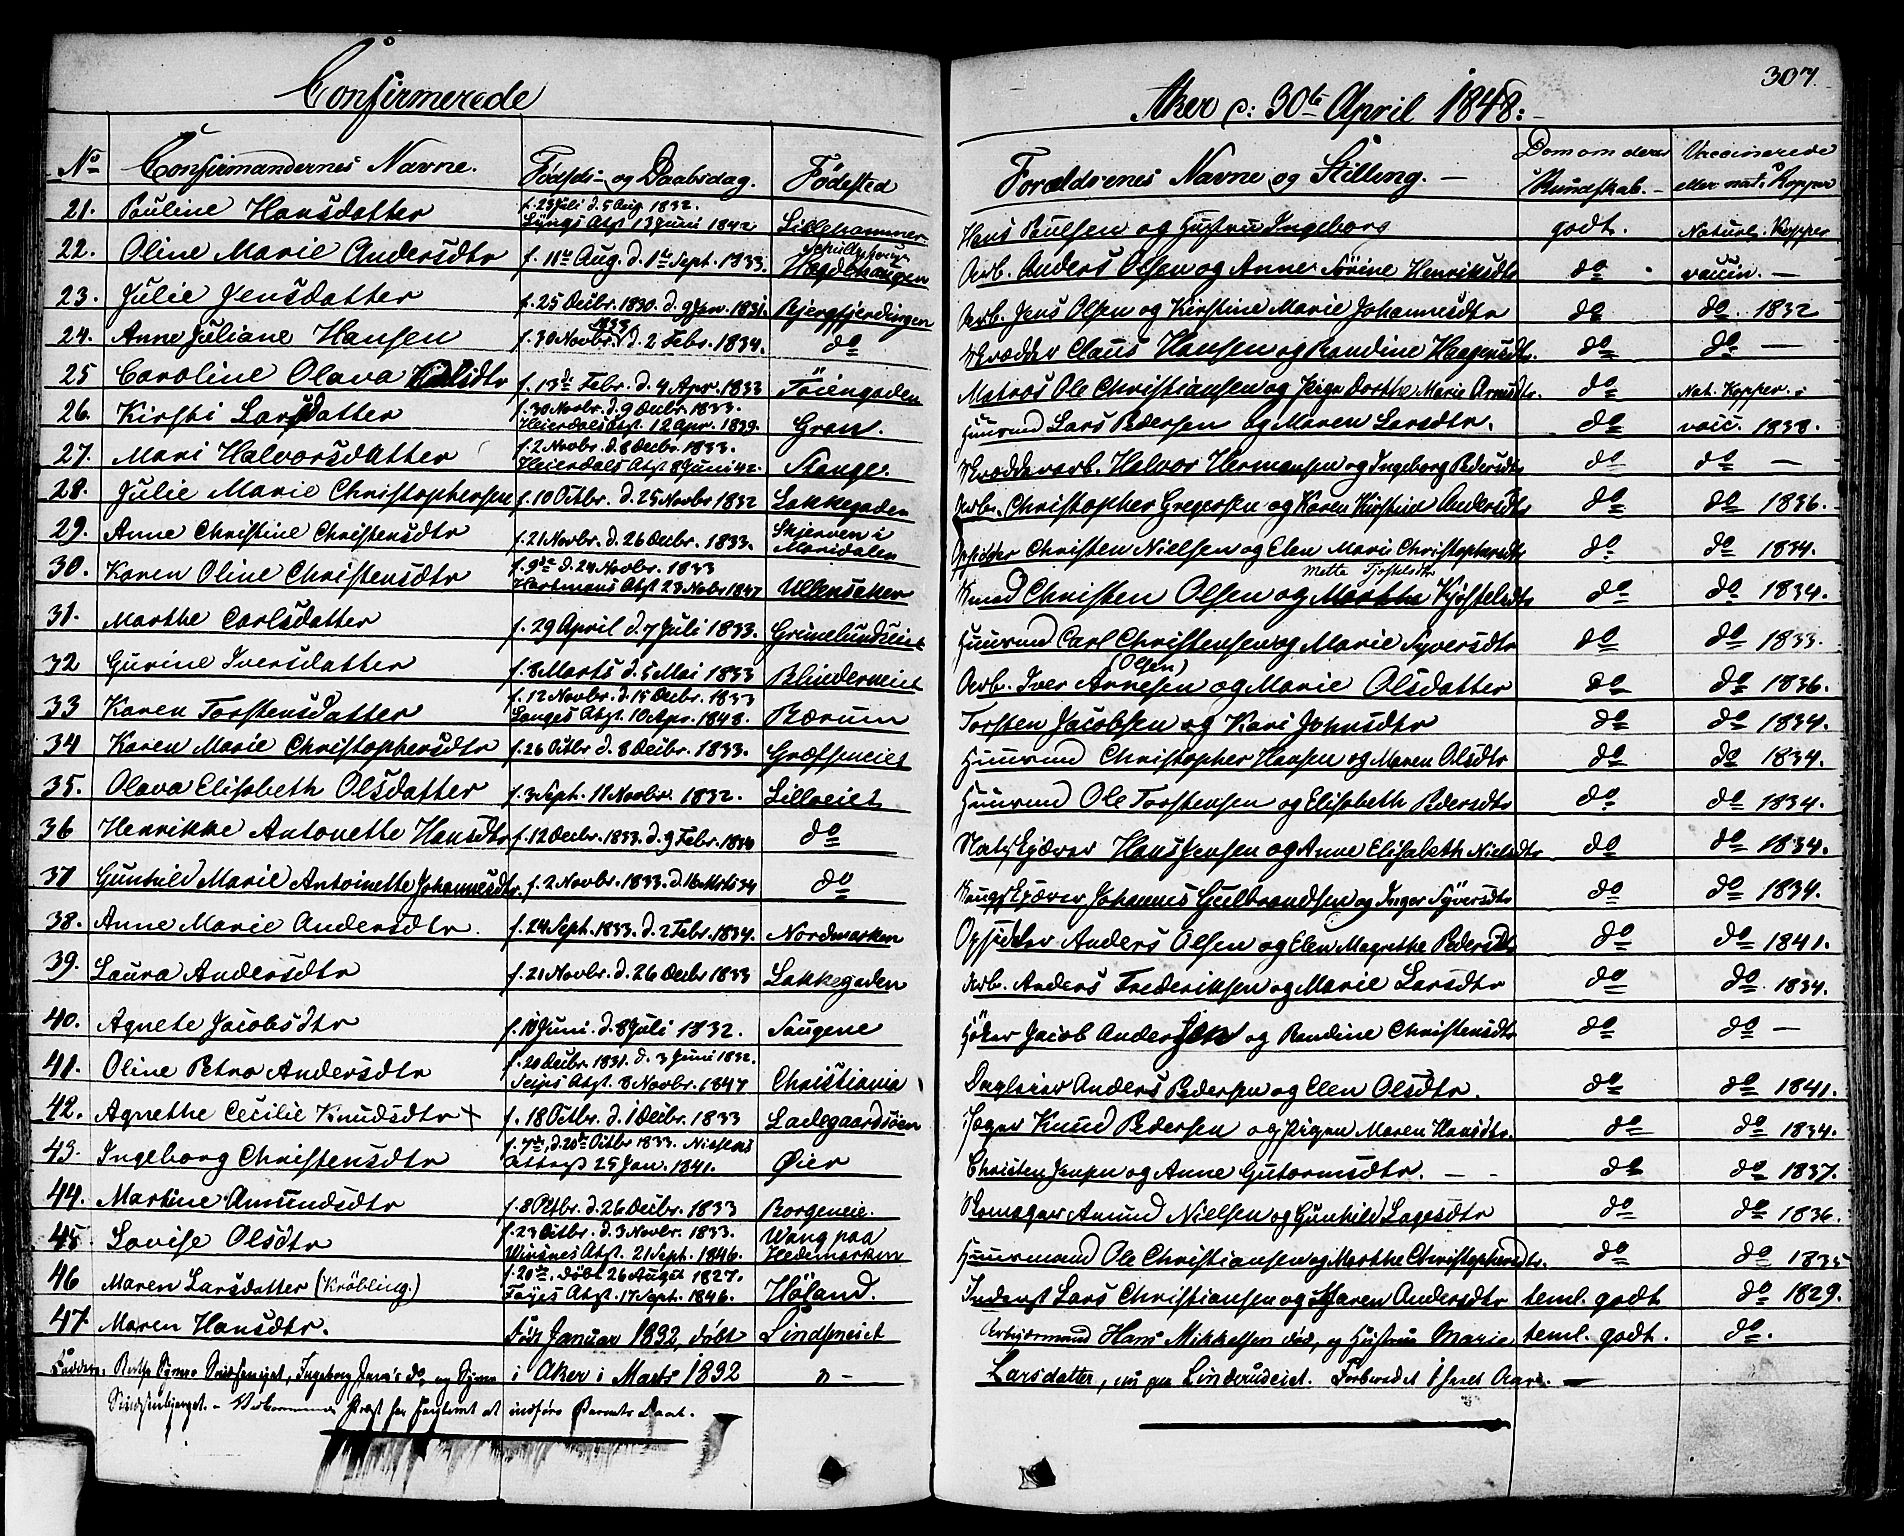 307.
Confirmerede
Aker d: 30te April 1848:
No Confirmandernes Navne. Fødsels- og Daabsdag. Fødested Forældrenes Navne og Stilling. — Dom om deres Kundskab. — Vaccinerede eller nat. Kopper
21. Pauline Hansdatter f. 23 Juli d. 5 Aug 1832. Lyngs Atst 13 Juni 1842 Lillehammer Hans Paulsen og Hustru Ingeborg godt. Naturl. Kopper
22. Oline Marie Andersdtr f. 11te Aug. d. 1te Sept. 1833. Hægdehaugen Arb. Anders Olsen og Anne Sørine Henriksdtr do vaccin. —
23. Julie Jensdatter f. 25 Decbr. 1830. d. 9 Jan. 1831. Bjergfjerdingen Arb. Jens Olsen og Kirstine Marie Johannesdtr do do. 1832
24. Anne Juliane Hansen f. 30 Novbr. 1833 d. 2 Febr. 1834. do Skrædder Claus Hansen og Randine Haagensdtr. do do —
25 Caroline Olava Olsdtr f. 13de Febr. d. 4 Apr. 1833 Tøiengaden Matros Ole Christiansen og Pige Dorthe Marie Arnesdtr. do Nat. Kopper.
26. Kirsti Larsdatter f. 30 Novbr. d. 9 Decbr. 1833. Heierdals Atst 12 Apr. 1839. Gran. Huusmd Lars Pedersen og Maren Larsdtr. do vacc. 1838.
27. Mari Halvorsdatter f. 2 Novbr. d. 8 Decbr. 1833. Heierdals Atst 8 Juni 42. Stange. Skrædderarb. Halvor Hermansen og Ingeborg Pedersdtr do do —
28. Julie Marie Christophersen f. 10 Octbr. d. 25 Novbr 1832 Lakkegaden Arb. Christopher Gregersen og Karen Kirstine Andersdtr do do 1836.
29. Anne Christine Christensdtr f. 21 Novbr. d. 26 Decbr. 1833. Skjerven i Maridalen Opsidder Christen Nielsen og Elen Marie Christophersdtr do do 1834.
30. Karen Oline Christensdtr f. 9de d. 24 Novbr. 1833 Hartmans Atst 23 Novbr 1847 Ullensaker Kmd Christen Olsen og Marthe Kjøstelsdtr Mette Tjostelsdtr do do 1834.
31. Marthe Carlsdatter f. 29 April d. 7 Juli 1833. Grimelundseiet Huusmd Carl Christensen og Marie Syversdtr do do 1833.
32 Gurine Iversdatter f. 8 Marts d. 5 Mai 1833 Blinderneiet Arb. Iver Arnesen (Olsen) og Marie Olsdatter do do 1836.
33 Karen Torstensdatter f. 12 Novbr. d. 15 Decbr. 1833 Langes Atst. 10 Apr. 1848. Bærum Torsten Jacobsen og Kari Johnsdtr do do 1834.
34 Karen Marie Christophersdtr f. 26 Octbr d. 8 Decbr. 1833. Græfseneiet Huusmd Christopher Hansen og Maren Olsdtr do do 1834.
35. Olava Elisabeth Olsdatter f. 3 Sept. 11 Novbr. 1832. Lilloeiet Huusmd Ole Torstensen og Elisabeth Pedersdtr do do 1834.
36 Henrikke Antonette Hansdtr f. 12 Decbr. 1833. d. 9 Febr. 1834 do Hans Jensen og Anne Elisabeth Nielsdtr do do 1834.
37 Gunhild Marie Antoinette Johannesdtr. f. 2 Novbr. 1833. d. 16 Mrts 34 do Johannes Gulbrandsen og Inger Syversdtr do do 1834.
38. Anne Marie Andersdtr. f. 24 Sept. 1833. d. 2 Febr. 1834. Nordmarken Opsidder Anders Olsen og Elen Magrethe Pedersdtr do do 1841.
39. Laura Andersdtr f. 21 Novbr. d. 26 Decbr 1833 Lakkegaden Arb. Anders Frederiksen og Marie Larsdtr do do 1834.
40. Agnete Jacobsdtr f. 10 Juni. d. 8 Juli 1832. Saugene Høker Jacob Andersen og Randine Christensdtr do do —
41. Oline Petra Andersdtr f. 20 Decbr. 1831. d. 3 Juni 1832. Atst. 8 Novbr. 1847 Christiania Anders Pedersen og Elen Olsdtr. do do 1841.
42. Agnethe Cecilie Knudsdtr + f. 18 Octbr. d. 1 Decbr. 1833 Ladegaardsøen Jæger Knud Pedersen og Pigen Maren Hansdtr. do do 1834.
43. Ingeborg Christensdtr f. 7de, d. 20de Octbr 1833. Nielsens Attest 25 Jan. 1841. Øier Christen Jensen og Anne Gutormsdtr. — - do do 1837.
44. Martine Amundsdtr f. 8 Octbr. d. 26 Decbr. 1833 Borgeneie. Skomager Amund Nielsen og Gunhild Lagesdtr do do 1836.
45. Lovise Olsdtr f. 23 Octbr. d. 3 Novbr. 1833. Winsnes Atst. 21 Sept. 1846. Wang paa Hedemarken Huusmand Ole Christiansen og Marthe Christophersdtr. do do 1835
46 Maren Larsdatter (Krøbling.) f. 20de, døbt 26 August 1827. Føyes Atst. 17 Sept. 1846. Høland. Inderst Lars Christiansen og Maren Andersdtr teml. godt do 1829.
47. Maren Hansdtr. Før Januar 1832, døbt Lindseneiet Arbeidsmand Hans Mikkelsen død, og Hustrue Marie teml. godt. do.
i Aker i Marts 1832 Larsdatter, nu paa Linderudeiet. Forberedet i 1 Aar. —